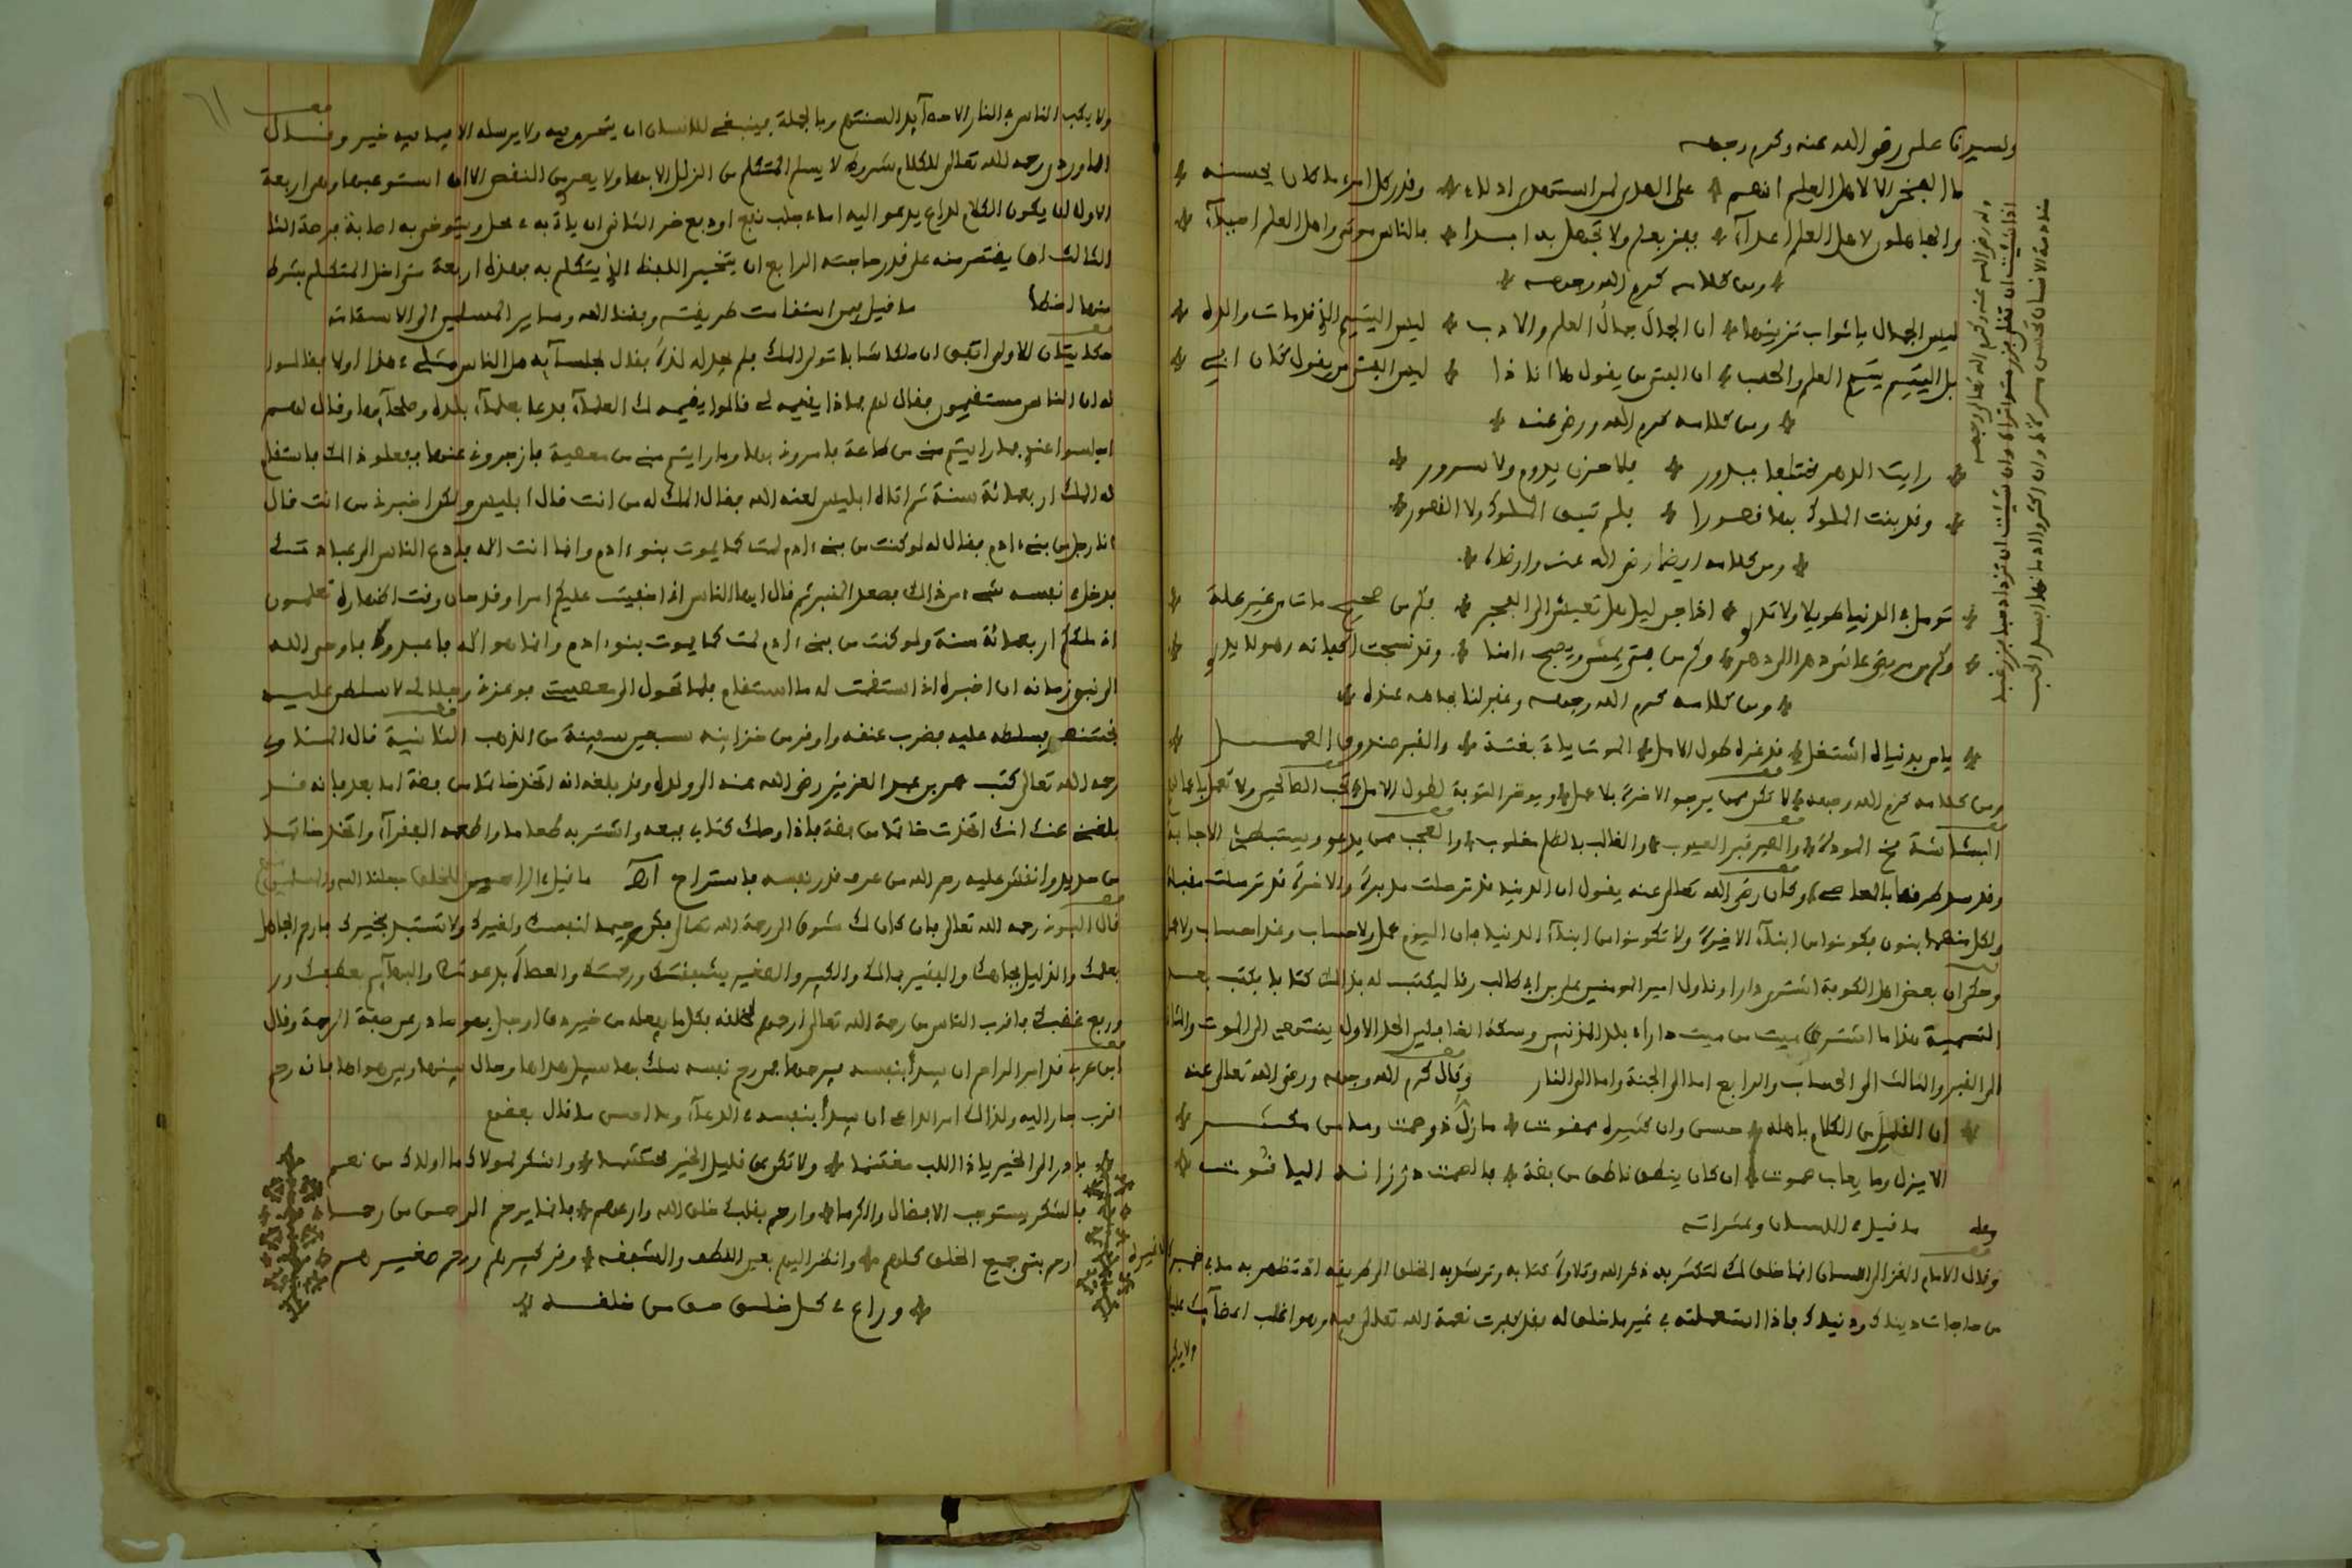 ولسيدنا علي رضي الله عنه وكرم وجهه
ما الفخر الا لاهل العلم انهم على الهدى لمن استهدى ادلاء وقدر كل امرء ما كان يحسنه
والجاهلون لاهل العلم اعداء ففز بعلم ولا تجهل به ابدا فالناس موتى واهل العلم احياء
ومن كلامه كرم الله وجهه
ليس الجمال باثواب تزينها ان الجمال جمال العلم والادب ليس اليتيم الذي قد مات والده
بل اليتيم يتيم العلم والحسب ان الفتى من يقول ها انا ذا ليس الفتى من يقول كان ابي
ومن كلامه كرم الله ورضي عنه
رايت الدهر مختلفا يدور فلا حزن يدوم ولا سرور
وقد بنت الملوك بها قصورا فلم تبق الملوك ولا القصور
ومن كلامه ايضا رضي الله عنه وارضاه
تومل في الدنيا طويلا ولا تدري اذا جن ليل هل تعيش الى الفجر فكم من صحيح مات من غير علة
وكم من مريض عاش دهرا الى دهر وكم من فتى يمسي ويصبح ءامنا وقد نسجت اكفانه وهو لا يدري
ومن كلامه كرم الله وجهه وغفر لنا بجاهه عنده
يا من بدنياه اشتغل قد غره طول الامل الموت ياتي بغتة والقبر صندوق العمل
ومن كلامه كرم الله وجهه لا تكن ممن يرجو الاخرة بلا عمل ويوخر التوبة لطول الامل تحب الصالحين ولا تعمل باعمالهم
البشاشة مخ المودة والصبر قبر العيوب والغالب بالظلم مغلوب والعجب ممن يدعو ويستبطئ الاجابة
وقد سد طرقها بالمعاصي وكان رضي الله تعالى عنه يقول ان الدنيا قد ترحلت مدبرة والاخرة قد ترحلت مقبلة
ولكل منهما بنون فكونوا من ابناء الاخرة ولا تكونوا من ابناء الدنيا فان اليوم عمل ولا حساب وغدا حساب ولا عمل
وحكي ان بعض اهل الكوفة اشترى دارا وناول امير المومنين علي بن ابي طالب رقا ليكتب له بذالك كتابا فكتب بعد
التسمية هذا ما اشترى ميت من ميت دارا في بلد المذنبين وسكة الغافلين الحد الاول ينتهي الى الموت والثاني
الى القبر والثالث الى الحساب والرابع اما الى الجنة واما الى النار وقال كرم الله وجهه ورضي الله تعالى عنه
ان القليل من الكلام باهله حسن وان كثيره ممقوت ما زل ذو صمت وما من مكثر
الا يزل وما يعاب صموت ان كان ينطق ناطق من فضة فالصمت در زانه الياقوت
ما قيل في اللسان وعثراته
وقال الامام الغزالي اللسان انما خلق لك لتكثر به ذكر الله وتلاوة كتابه وترشد به الخلق الى طريقه او تظهر به ما في ضميرك
من حاجات دينك ودنياك فاذا استعملته في غير ما خلق له فقد كفرت نعمة الله تعالى فيه وهو اغلب اعضائك عليك
ولا يكب
وله رضي الله عنه وكرم الله تعالى وجهه
ولا يكب الناس في النار الا حصائد السنتهم وبالجملة فينبغي للانسان ان يتحرى فيه ولا يرسله الا فيما فيه خير وقال
الماوردي رحمه الله تعالى للكلام شروط لا يسلم المتكلم من الزلل الا بها ولا يعرى من النقص الا ان استوعبها وهي اربعة
الاول ان يكون الكلام لداع يدعو اليه اما في جلب نفع او دفع ضر الثاني ان ياتي به في محله ويتوخى به اصابة فرصة الثا
الثالث ان يقتصر منه على قدر حاجته الرابع ان يتخير اللفظ الذي يتكلم به فهذه اربعة متى اخل المتكلم بشرط
منها اخطا ما قيل فيمن استقامت طريقته وفقنا الله وساير المسلمين الى الاستقامة
حكايتان الاولى اتفق ان ملكا شابا تولى الملك فلم يجد له لذة فقال لجلسائه هل الناس مثلي في هذا اولا فقالوا
له ان الناس مستقيمون فقال لهم فماذا يقيمه لي فقالوا يقيمه لك العلماء فدعا بعلماء بلده وصلحائها وقال لهم
اجلسوا عندي فما رايتم مني من طاعة فامروني بها وما رايتم مني من معصية فازجروني عنها ففعلوا ذالك فاستقام
له الملك اربعمائة سنة ثم اتاه ابليس لعنه الله فقال الملك له من انت قال ابليس ولكن اخبرني من انت قال
انا رجل من بني ءادم فقال له لو كنت من بني ءادم لمت كما يموت بنو ءادم وانما انت اله فادع الناس الى عبادتك
فدخل في نفسه شيء من ذالك فصعد المنبر ثم قال ايها الناس اني اخفيت عليكم امرا وقد حان وقت اظهاره تعلمون
اني ملكتكم اربعمائة سنة ولو كنت من بني ءادم لمت كما يموت بنو ءادم وانما هو اله فاعبدوني فاوحى الله
الى نبي زمانه ان اخبره اني استقمت له ما استقام فلما تحول الى معصيتي فوعزتي وجلالي لاسلطن عليه
بختنصر فسلطه عليه فضرب عنقه واوقر من خزاينه سبعين سفينة من الذهب الثانية قال المناوي
رحمه الله تعالى كتب عمر بن عبد العزيز رضي الله عنه الى ولده وقد بلغه انه اتخذ خاتما من فضة اما بعد فانه قد
بلغني عنك انك اتخذت خاتما من فضة فاذا وصلك كتابي فبعه واشتر به طعاما واطعمه الفقراء واتخذ خاتما
من حديد وانقش عليه رحم الله من عرف قدر نفسه فاستراح اه ما قيل في الراحمين للخلق جعلنا الله والمسلمين منهم
قال البوني رحمه الله تعالى فان كان لك شوق الى رحمة الله تعالى فكن رحيما لنفسك ولغيرك ولا تستبد بخيرك فارحم الجاهل
بعلمك والذليل بجاهك والفقير بمالك والكبير والصغير بشفقتك ورحمتك والعصاة بدعوتك والبهايم بعطفك ور
ورفع غضبك فاقرب الناس من رحمة الله تعالى ارحمهم لخلقه فكل ما يفعله من خير دق او جل فهو صادر عن صفة الرحمة وقال
ابن عربي قد امر الراحم ان يبدأ بنفسه فيرحمها فمن رحم نفسه سلك بها سبيل هداها وحال بينها وبين هواها فانه رحم
اقرب جار اليه ولذالك امر الداعي ان يبدأ بنفسه في الدعاء وما احسن ما قال بعضهم
بادر الى الخير يا ذا اللب مغتنما ولا تكن من قليل الخير محتشما واشكر لمولاك ما اولاك من نعم
فالشكر يستوجب الافضال والكرما وارحم بقلبك خلق الله وارعهم فانما يرحم الرحمن من رحما
ارحم بني جميع الخلق كلهم وانظر اليهم بعين اللطف والشفقه وقر كبيرهم وارحم صغيرهم
وراع في كل خلق حق من خلقه